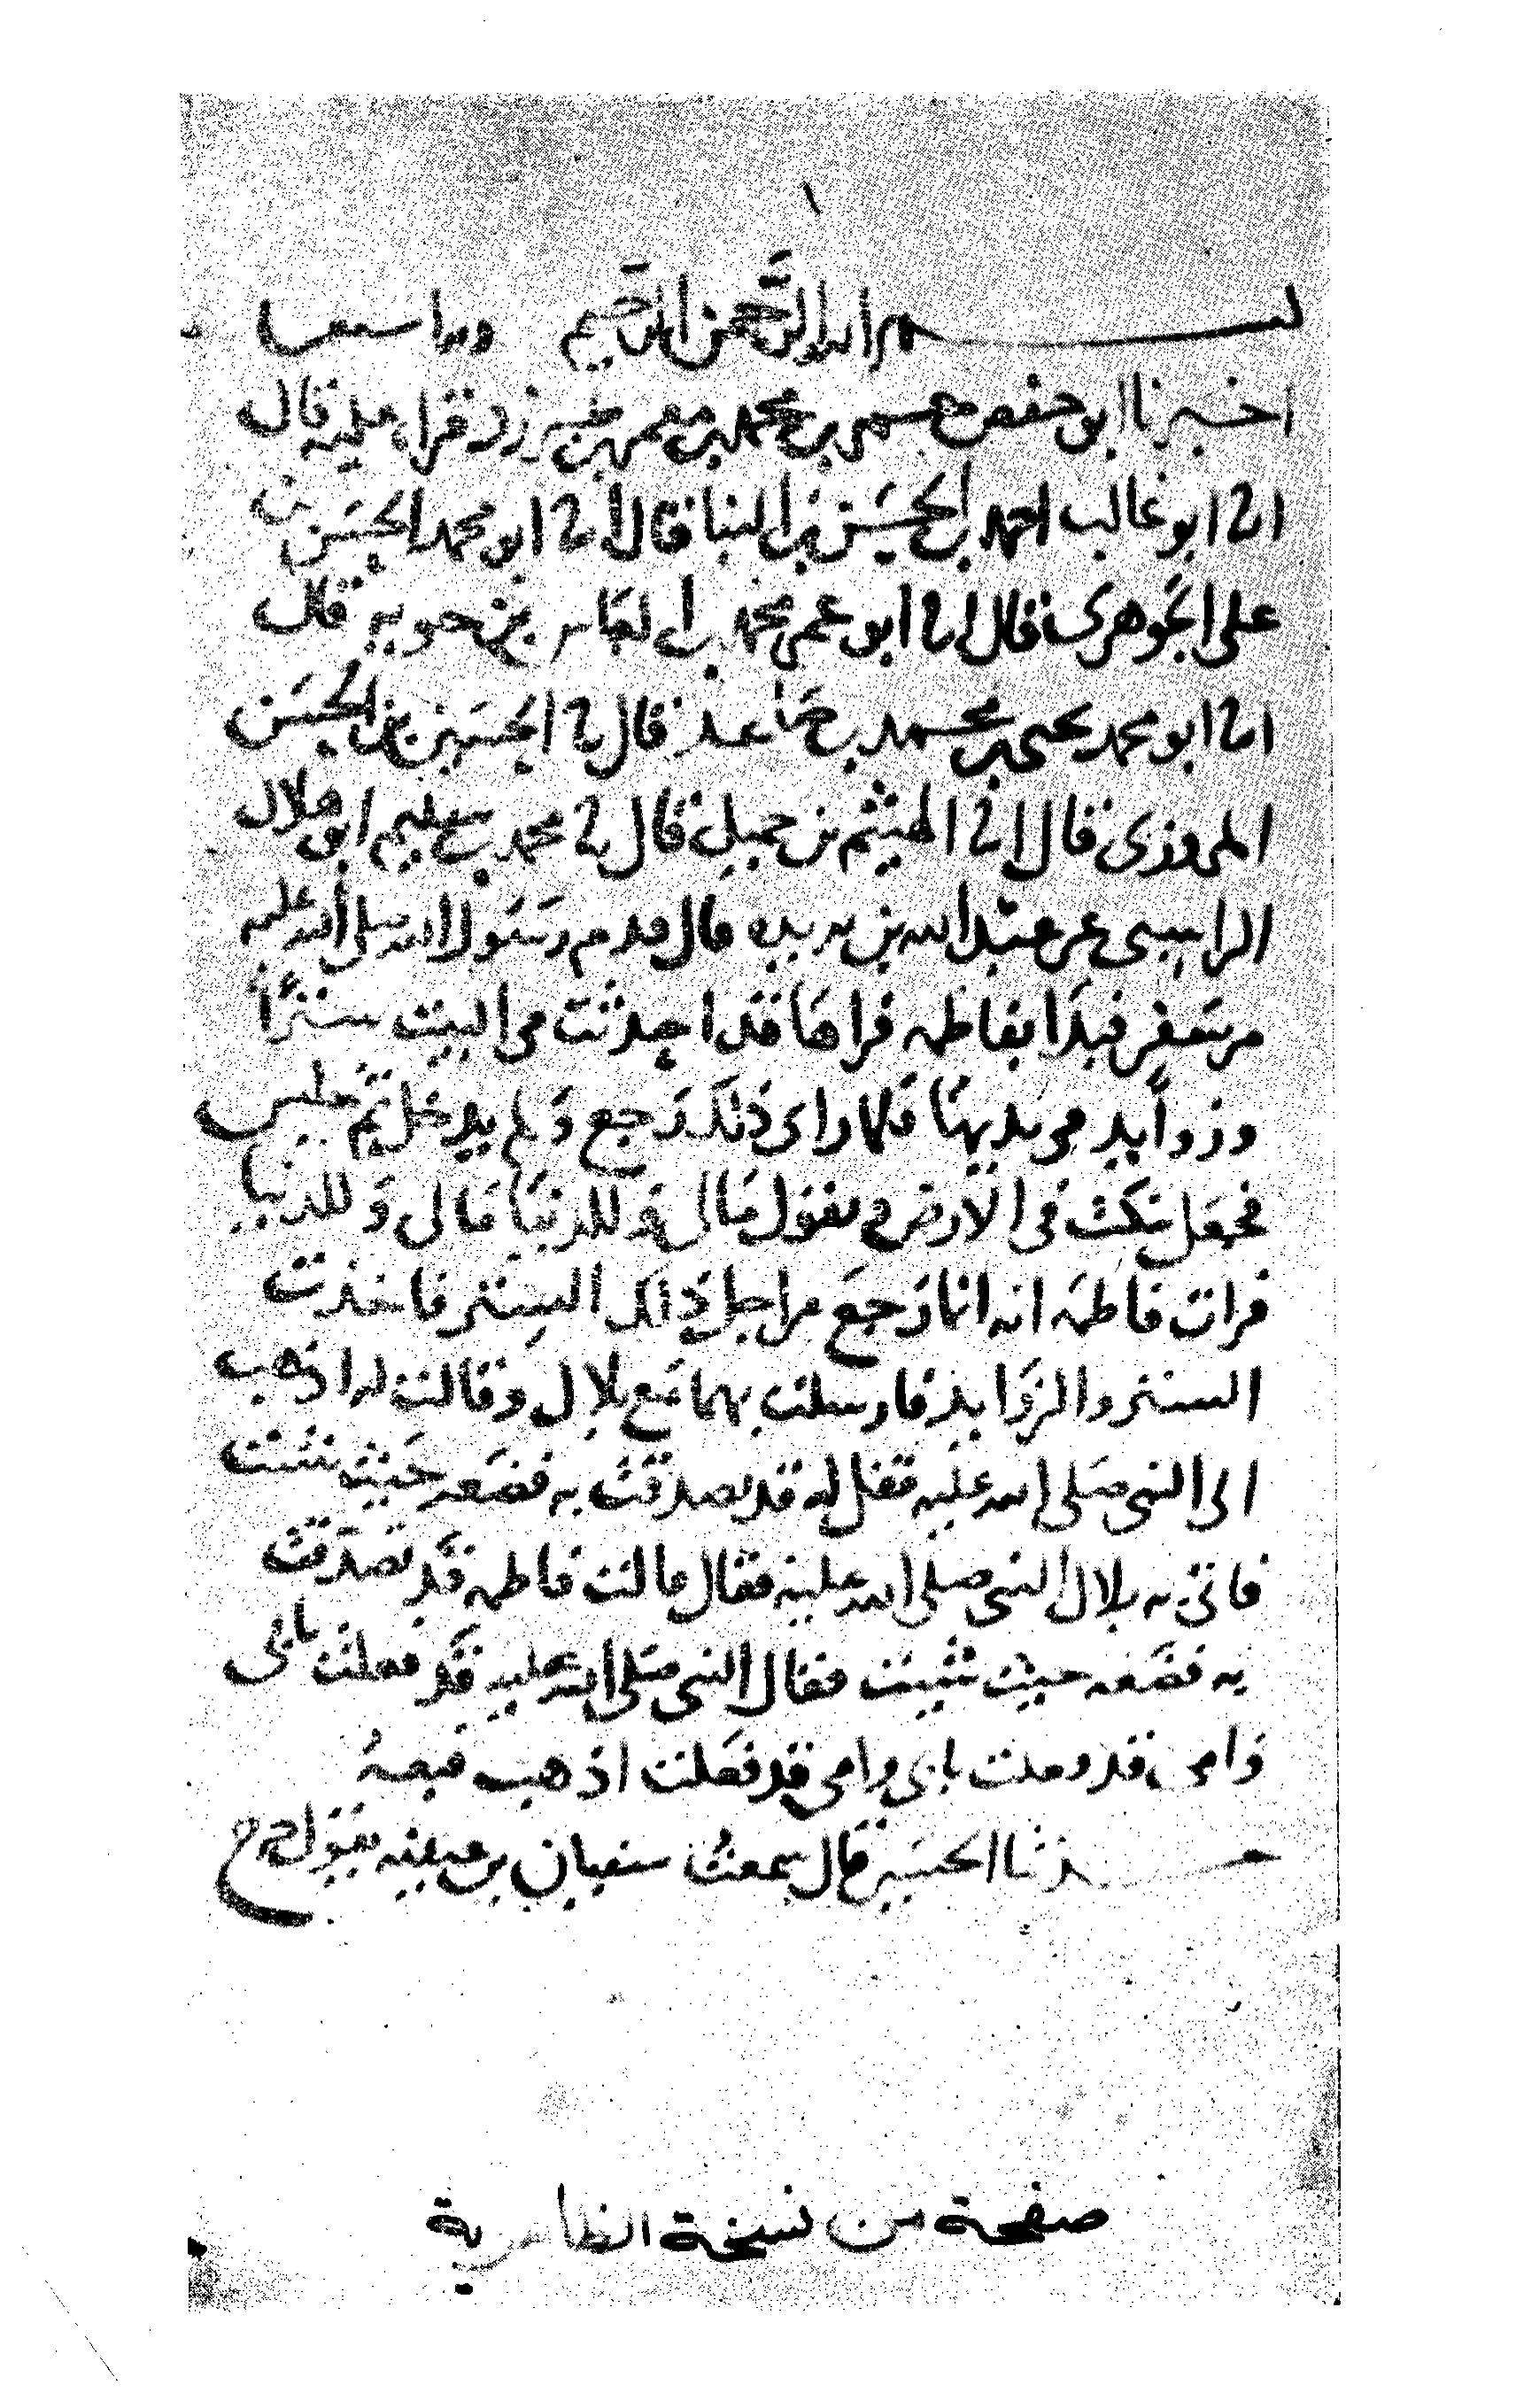 ١
بسم الله الرحمن الرحيم
اخبرنا ابو حفص عمر بن محمد بن معمر بن طبرزد قراه عليه قال
انا ابو غالب احمد بن الحسن بن البنا قال انا ابو محمد الحسن بن
على الجوهرى قال انا ابو عمر محمد بن العباس بن حيويه قال
انا ابو محمد يحيى بن محمد بن صاعد قال نا الحسين بن الحسن
المروزى قال انا الهيثم بن جميل قال نا محمد بن سليم ابو هلال
الراسبى عن عبد الله بن بريده قال قدم رسول الله صلى الله عليه
من سفر فبدا بفاطمه فراها قد احدثت فى البيت سترًا
وزوايد فى يديها فلما راى ذلك رجع ولم يدخل ثم جلس
فجعل ينكث فى الارض ويقول مالى وللدنيا مالى وللدنيا
فرات فاطمه انه انما رجع من اجل ذلك الستر فاخذت
الستر والزوايد فارسلت بهما مع بلال وقالت له اذهب
الى النبى صلى الله عليه فقل له قد تصدقت به فضعه حيث شئت
فاتى به بلال النبى صلى الله عليه فقال قالت فاطمه قد تصدقت
به فضعه حيث شئت فقال النبى صلى الله عليه قد فعلت بابى
وامى قد فعلت بابى وامى قد فعلت اذهب فبعهُ
حدثنا الحسين قال سمعت سفيان بن عيينه يقول
صفحة من نسخة الظاهرية